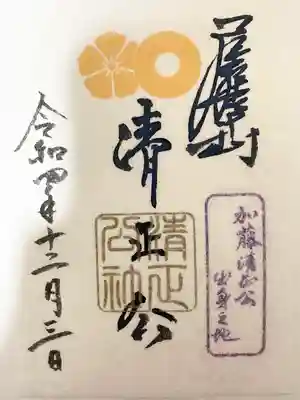 清正公
清正
公神
加藤清正公
出身之地
令和四年十二月三日